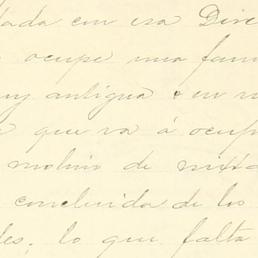 tada con esa Dire
ocupe una fam
uy antigua en
que va á ocup
molino de nixta
concluida de los
des; lo que falta